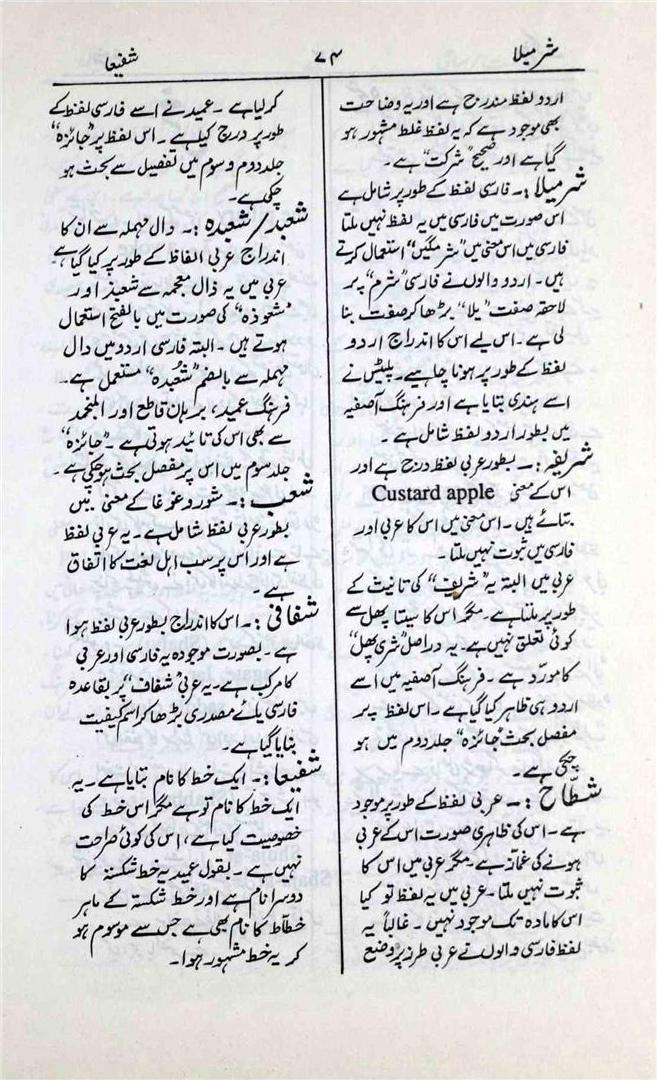 شرمیلا
۷۴
شفیعا
اردو لفظ مندرج ہے اور یہ وضاحت
بھی موجود ہے کہ یہ لفظ غلط مشہور ہو
گیا ہے اور صحیح "شرکت" ہے۔
شرمیلا:۔ فارسی لفظ کے طور پر شامل ہے
اس صورت میں فارسی میں یہ لفظ نہیں ملتا
فارسی میں اس معنی میں "شرمگیں" استعمال کرتے
ہیں۔ اردو والوں نے فارسی "شرم" پر
لاحقہ صفت "یلا" بڑھا کر صفت بنا
لی ہے۔ اس لیے اس کا اندراج اردو
لفظ کے طور پر ہونا چاہیے۔ پلیٹس نے
اسے ہندی بتایا ہے اور فرہنگ آصفیہ
میں بطور اردو لفظ شامل ہے۔
شریفہ:۔ بطور عربی لفظ درج ہے اور
اس کے معنی Custard apple
بتائے ہیں۔ اس معنی میں اس کا عربی اور
فارسی میں ثبوت نہیں ملتا۔
عربی میں البتہ یہ "شریف" کی تانیث کے
طور پر ملتا ہے۔ مگر اس کا سیتا پھل سے
کوئی تعلق نہیں ہے۔ یہ دراصل "شری پھل"
کا مورّد ہے۔ فرہنگ آصفیہ میں اسے
اردو ہی ظاہر کیا گیا ہے۔ اس لفظ پر
مفصل بحث "جائزہ" جلد دوم میں ہو
چکی ہے۔
شطّاح:۔ عربی لفظ کے طور پر موجود
ہے۔ اس کی ظاہری صورت اس کے عربی
ہونے کی غمّاز ہے۔ مگر عربی میں اس کا
ثبوت نہیں ملتا۔ عربی میں یہ لفظ تو کیا
اس کا مادہ تک موجود نہیں۔ غالباً یہ
لفظ فارسی والوں نے عربی طرز پر وضع
کر لیا ہے۔ عمید نے اسے فارسی لفظ کے
طور پر درج کیا ہے۔ اس لفظ پر "جائزہ"
جلد دوم و سوم میں تفصیل سے بحث ہو
چکی ہے۔
شعبد/شعبدہ:۔ دال مہملہ سے ان کا
اندراج عربی الفاظ کے طور پر کیا گیا ہے۔
عربی میں یہ ذال معجمہ سے شعبذ اور
"شعوذہ" کی صورت میں بالفتح استعمال
ہوتے ہیں۔ البتہ فارسی اردو میں دال
مہملہ سے بالضم "شُعبدہ" مستعمل ہے۔
فرہنگ عمید، برہان قاطع اور المنجد
سے بھی اس کی تائید ہوتی ہے۔ "جائزہ"
جلد سوم میں اس پر مفصل بحث ہو چکی ہے۔
شعب:۔ شور و غوغا کے معنی میں
بطور عربی لفظ شامل ہے۔ یہ عربی لفظ
ہے اور اس پر سب اہل لغت کا اتفاق
ہے۔
شفافی:۔ اس کا اندراج بطور عربی لفظ ہوا
ہے۔ بصورت موجودہ یہ فارسی اور عربی
کا مرکب ہے۔ یہ عربی "شفاف" پر بقاعدہ
فارسی یائے مصدری بڑھا کر اسم کیفیت
بنایا گیا ہے۔
شفیعا:۔ ایک خط کا نام بتایا ہے۔ یہ
ایک خط کا نام تو ہے مگر اس خط کی
خصوصیت کیا ہے، اس کی کوئی صراحت
نہیں ہے۔ بقول عمید یہ خط شکستہ کا
دوسرا نام ہے اور خط شکستہ کے ماہر
خطّاط کا نام بھی ہے جس سے موسوم ہو
کر یہ خط مشہور ہوا۔